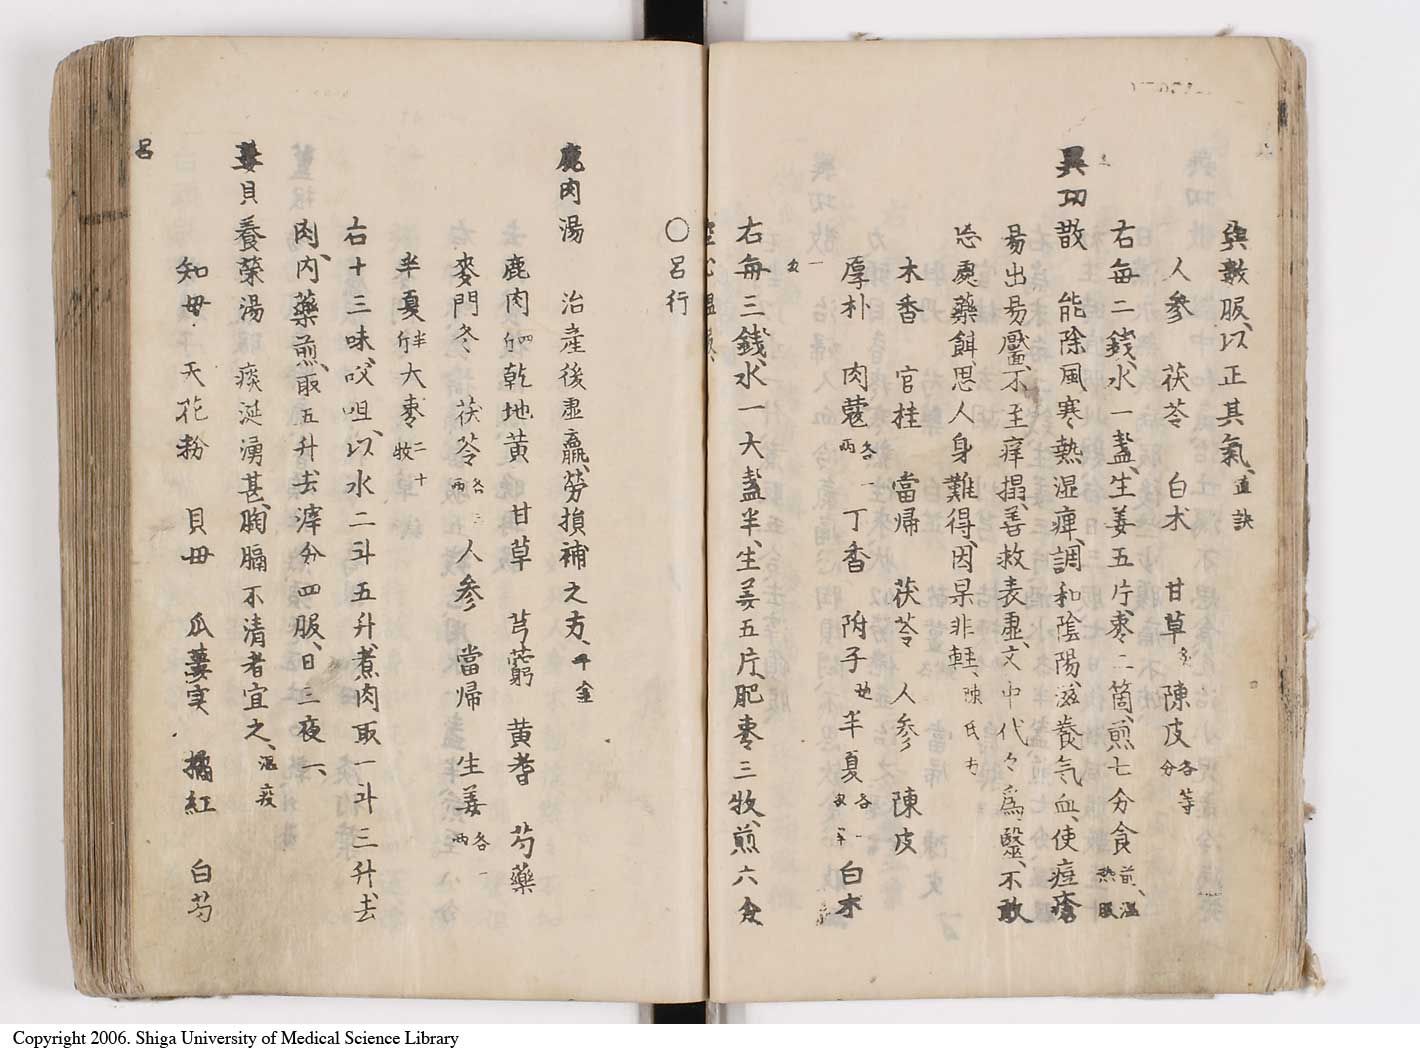 與數服、以正其氣、直訣
人参 茯苓 白术 甘草炙 陳皮各等分
右每二錢、水一盞、生姜五片、枣二箇、煎七分、食前、溫熱服
異功散 能除風寒熱湿痺、調和陰陽、滋養氣血、使痘瘡
易出易靨、不至痒揭、善救表虛、文中代々爲毉、不敢
恣處藥餌、思人身難得、因杲非軽、陳氏方
木香 官桂 當帰 茯苓 人参 陳皮
厚朴 肉蔻各一兩 丁香 附子 半夏各一 白术
右每三錢、水一大盞半、生姜五片、肥枣三牧、煎六分
空心温服
〇呂行
鹿肉湯 治産後虛羸、勞損補之方、千金
鹿肉四斤 乾地黄 甘草 芎藭 黄耆 芍藥
麥門冬 茯苓各三兩 人参 當帰 生姜各一兩
半夏半斤 大枣二十牧
右十三味、㕮咀、以水二斗五升、煮肉取一斗三升、去
肉、内藥煎、取五升、去滓、分四服、日三夜一、
蔞貝養荣湯 痰涎湧甚、胸膈不清者宜之、温疫
知母 天花粉 貝母 瓜蔞实 橘紅 白芍
呂
Copyright 2006. Shiga University of Medical Science Library